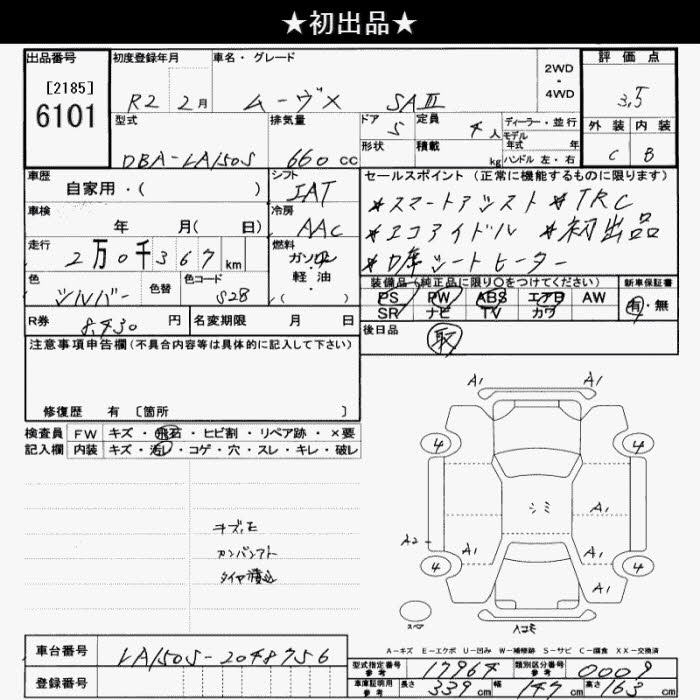 ★初出品★
出品番号 初度登録年月 車名・グレード 評価点
[2185]
6101
R2 2月 ムーヴX SAⅢ 2WD・4WD 3.5
型式 排気量 ドア 定員 ディーラー・並行 外装 内装
DBA-LA150S 660cc 5 4人 モデル年式 年 C B
形状 積載 kg ハンドル 左・右
車歴 自家用・( ) シフト IAT セールスポイント(正常に機能するものに限ります)
車検 年 月( 日) 冷房 AAC
*スマートアシスト *TRC
*エコアイドル *初出品
走行 2万0千367km 燃料 ガソリン・軽油・( )
シートヒーター
色 シルバー 色替 色コード S28
装備品(純正品に限り○をつけてください) 新車保証書
PS PW ABS エアB AW 有・無
SR ナビ TV カワ
R券 8,430円 名変期限 月 日
後日品 取
注意事項申告欄(不具合内容等は具体的に記入して下さい)
修復歴 有 [箇所 ]
検査員 FW キズ・飛石・ヒビ割・リペア跡・×要
記入欄 内装 キズ・汚レ・コゲ・穴・スレ・キレ・破レ
A1 A1
4 4
シミ A1
A2 A1 A1
4 4
A1
キズ,凹
タイヤ積込
スペア
A-キズ E-エクボ U-凹み W-補修跡 S-サビ C-腐食 XX-交換済
車台番号 LA150S-2048756
登録番号
型式指定番号 参考 17964 類別区分番号 参考 0009
車庫証明用 参考 長さ 339cm 幅 147cm 高さ 163cm